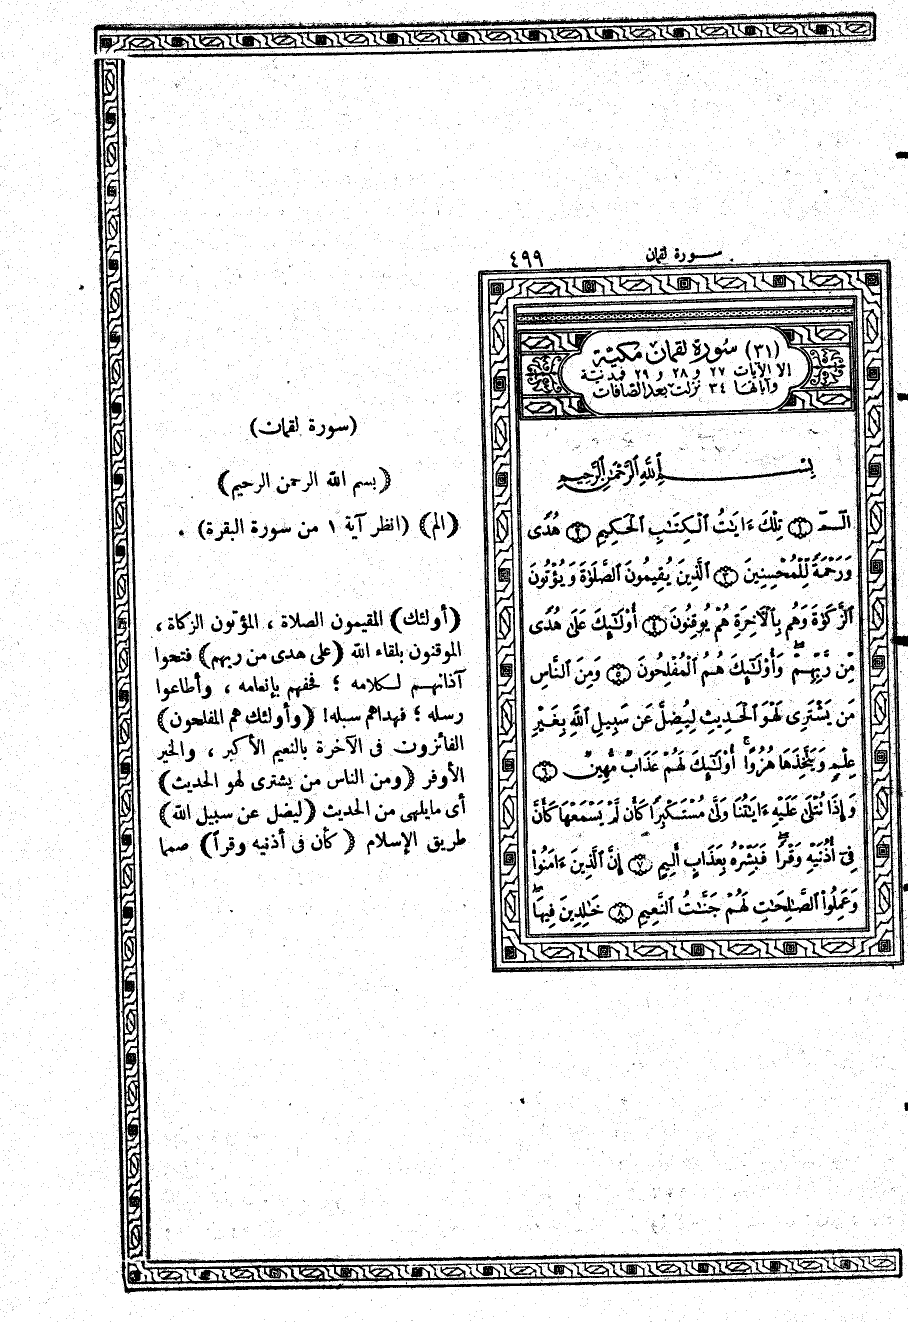 سورة لقمان
٤٩٩
(٣١) سُورَة لقمان مكيّة
الا الآيات ٢٧ و ٢٨ و ٢٩ فمدنية
وآياتها ٣٤ نزلت بعد الصافات
بِسْمِ ٱللَّهِ ٱلرَّحْمَٰنِ ٱلرَّحِيمِ
الٓمٓ ١ تِلْكَ ءَايَٰتُ ٱلْكِتَٰبِ ٱلْحَكِيمِ ٢ هُدًى
وَرَحْمَةً لِّلْمُحْسِنِينَ ٣ ٱلَّذِينَ يُقِيمُونَ ٱلصَّلَوٰةَ وَيُؤْتُونَ
ٱلزَّكَوٰةَ وَهُم بِٱلْأَخِرَةِ هُمْ يُوقِنُونَ ٤ أُوْلَٰٓئِكَ عَلَىٰ هُدًى
مِّن رَّبِّهِمْ ۖ وَأُوْلَٰٓئِكَ هُمُ ٱلْمُفْلِحُونَ ٥ وَمِنَ ٱلنَّاسِ
مَن يَشْتَرِى لَهْوَ ٱلْحَدِيثِ لِيُضِلَّ عَن سَبِيلِ ٱللَّهِ بِغَيْرِ
عِلْمٍ وَيَتَّخِذَهَا هُزُوًا ۚ أُوْلَٰٓئِكَ لَهُمْ عَذَابٌ مُّهِينٌ ٦
وَإِذَا تُتْلَىٰ عَلَيْهِ ءَايَٰتُنَا وَلَّىٰ مُسْتَكْبِرًا كَأَن لَّمْ يَسْمَعْهَا كَأَنَّ
فِىٓ أُذُنَيْهِ وَقْرًا ۖ فَبَشِّرْهُ بِعَذَابٍ أَلِيمٍ ٧ إِنَّ ٱلَّذِينَ ءَامَنُواْ
وَعَمِلُواْ ٱلصَّٰلِحَٰتِ لَهُمْ جَنَّٰتُ ٱلنَّعِيمِ ٨ خَٰلِدِينَ فِيهَا ۖ
(سورة لقمان)
(بسم الله الرحمن الرحيم)
(الم) (انظر آية ١ من سورة البقرة) .
(أولئك) المقيمون الصلاة ، المؤتون الزكاة ،
الموقنون بلقاء الله (على هدى من ربهم) فتحوا
آذانهم لكلامه ؛ فحفهم بإنعامه ، وأطاعوا
رسله ؛ فهداهم سبله! (وأولئك هم المفلحون)
الفائزون فى الآخرة بالنعيم الأكبر ، والخير
الأوفر (ومن الناس من يشترى لهو الحديث)
أى مايلهى من الحديث (ليضل عن سبيل الله)
طريق الإسلام (كأن فى أذنيه وقراً) صمما